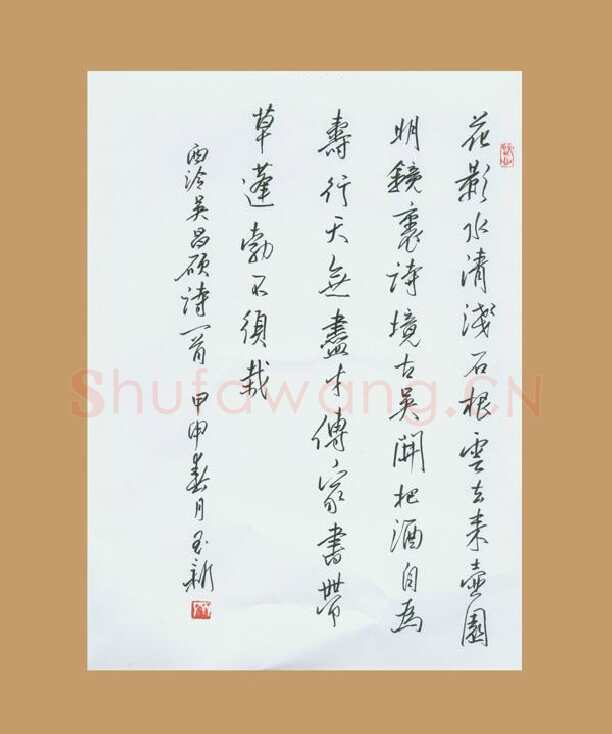 花影水清淺石根雲去來壺園
明鏡裏詩境古吳開把酒自為
壽行天無盡才傳家書帶
草蓬勃不須栽
西泠吳昌碩詩一首 甲申春月新
Shufawang.CN